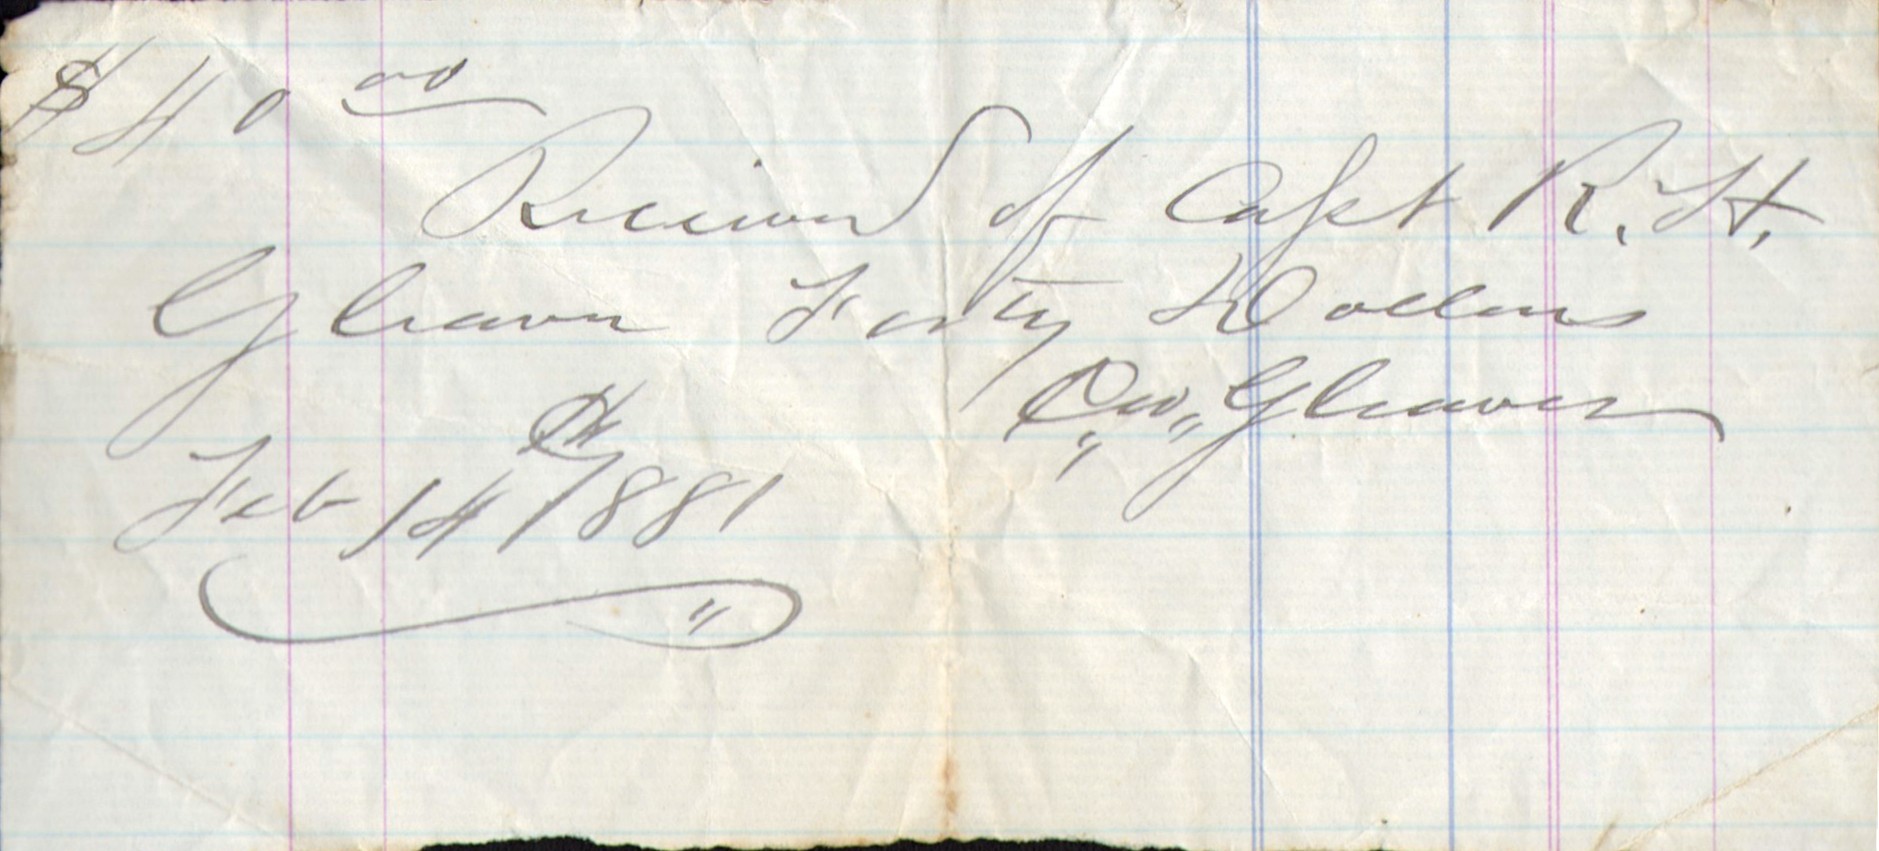 $40 00
Received of Capt R. H.
Gleaves Forty Dollars
C,, W,, Gleaves
Feb 14th 1881